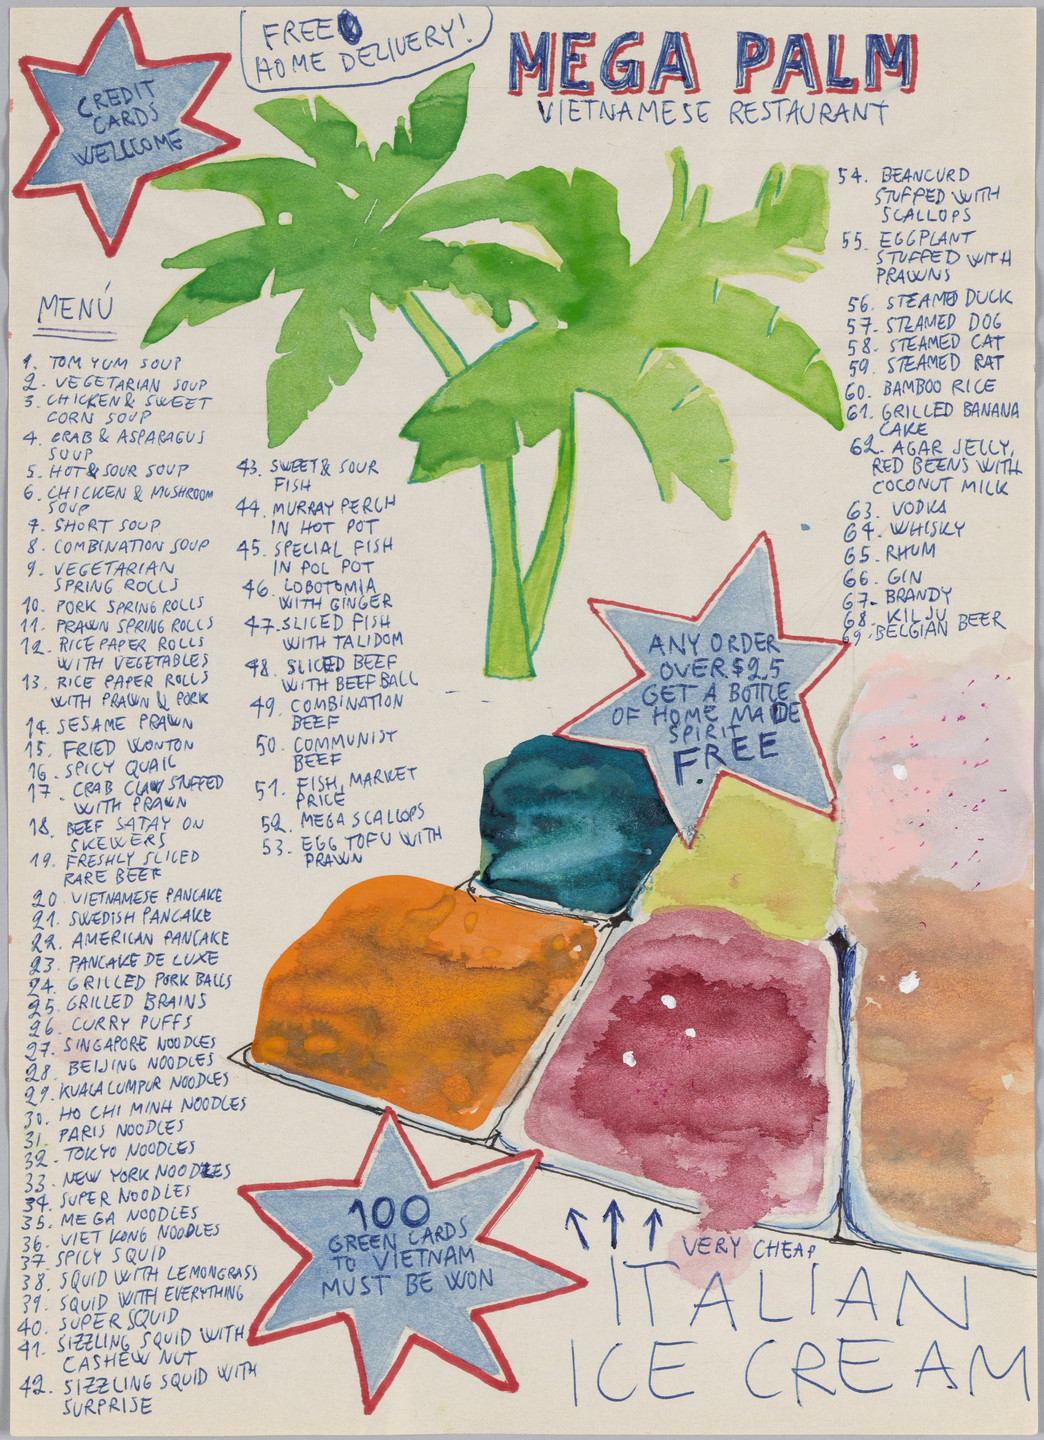 CREDIT
CARDS
WELLCOME
FREE
HOME DELIVERY!
MEGA PALM
VIETNAMESE RESTAURANT
MENÚ
1. TOM YUM SOUP
2. VEGETARIAN SOUP
3. CHICKEN & SWEET
CORN SOUP
4. CRAB & ASPARAGUS
SOUP
5. HOT & SOUR SOUP
6. CHICKEN & MUSHROOM
SOUP
7. SHORT SOUP
8. COMBINATION SOUP
9. VEGETARIAN
SPRING ROLLS
10. PORK SPRING ROLLS
11. PRAWN SPRING ROLLS
12. RICE PAPER ROLLS
WITH VEGETABLES
13. RICE PAPER ROLLS
WITH PRAWN & PORK
14. SESAME PRAWN
15. FRIED WONTON
16. SPICY QUAIL
17. CRAB CLAW STUFFED
WITH PRAWN
18. BEEF SATAY ON
SKEWERS
19. FRESHLY SLICED
RARE BEEF
20 VIETNAMESE PANCAKE
21. SWEDISH PANCAKE
22. AMERICAN PANCAKE
23. PANCAKE DE LUXE
24. GRILLED PORK BALLS
25. GRILLED BRAINS
26. CURRY PUFFS
27. SINGAPORE NOODLES
28. BEIJING NOODLES
29. KUALA LUMPUR NOODLES
30. HO CHI MINH NOODLES
31. PARIS NOODLES
32. TOKYO NOODLES
33. NEW YORK NOODLES
34. SUPER NOODLES
35. MEGA NOODLES
36. VIET KONG NOODLES
37. SPICY SQUID
38. SQUID WITH LEMONGRASS
39. SQUID WITH EVERYTHING
40. SUPER SQUID
41. SIZZLING SQUID WITH
CASHEW NUT
42. SIZZLING SQUID WITH
SURPRISE
43. SWEET & SOUR
FISH
44. MURRAY PERCH
IN HOT POT
45. SPECIAL FISH
IN POL POT
46. LOBOTOMIA
WITH GINGER
47. SLICED FISH
WITH TALIDOM
48. SLICED BEEF
WITH BEEF BALL
49. COMBINATION
BEEF
50. COMMUNIST
BEEF
51. FISH, MARKET
PRICE
52. MEGA SCALLOPS
53. EGG TOFU WITH
PRAWN
54. BEANCURD
STUFFED WITH
SCALLOPS
55. EGGPLANT
STUFFED WITH
PRAWNS
56. STEAMD DUCK
57. STEAMED DOG
58. STEAMED CAT
59. STEAMED RAT
60. BAMBOO RICE
61. GRILLED BANANA
CAKE
62. AGAR JELLY,
RED BEENS WITH
COCONUT MILK
63. VODKA
64. WHISKY
65. RHUM
66. GIN
67. BRANDY
68. KILJU
69. BELGIAN BEER
ANY ORDER
OVER $25
GET A BOTTLE
OF HOME MADE
SPIRIT
FREE
100
GREEN CARDS
TO VIETNAM
MUST BE WON
VERY CHEAP
ITALIAN
ICE CREAM